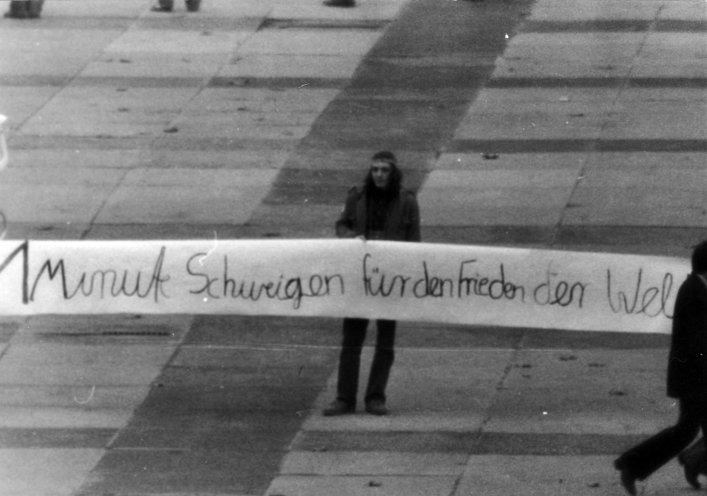 1 Minute Schweigen für den Frieden der Wel